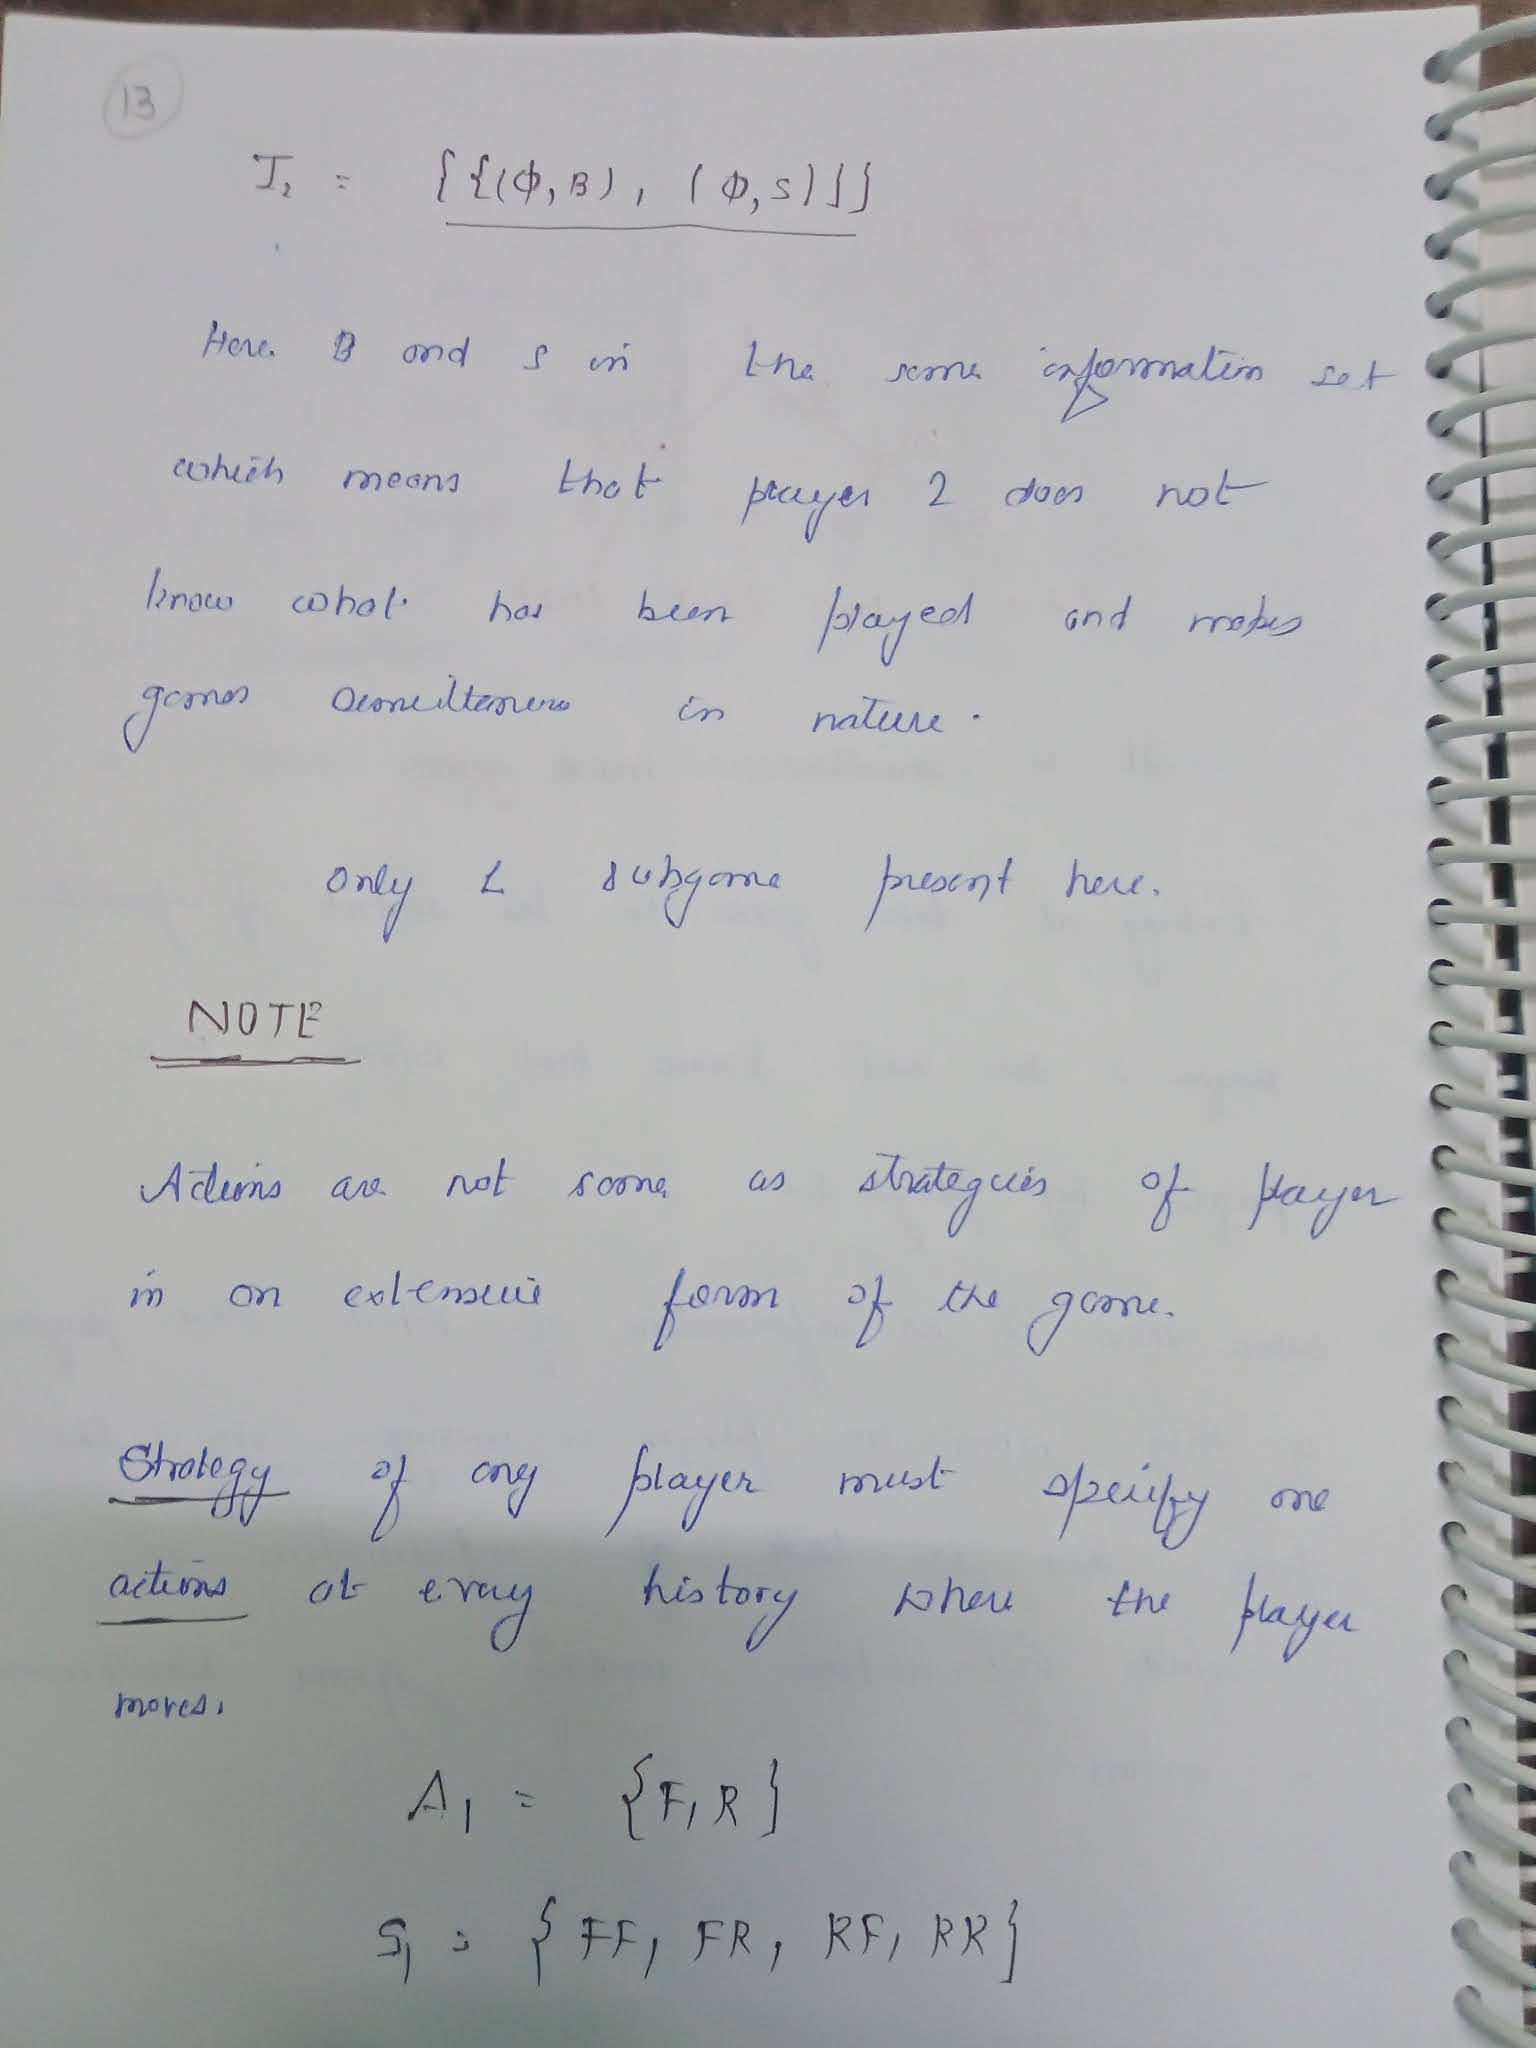 13
I₂ = {{(Φ,B), (Φ,S)}}
Here B and S in the same information set
which means that player 2 does not
know what has been played and makes
games simultaneous in nature.
only 1 subgame present here.
NOTE
Actions are not same as strategies of player
in an extensive form of the game.
Strategy of any player must specify one
actions at every history where the player
moves.
A₁ = {F, R}
S₁ = {FF, FR, RF, RR}